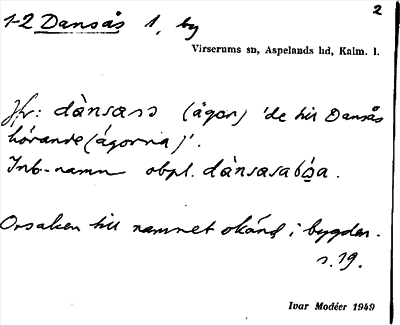 2
1-2 Dansås 1, by
Virserums sn, Aspelands hd, Kalm. l.
Jfr: dànsass (ägor) 'de till Dansås
hörande (ägorna)'.
Inb.-namn obpl. dànsasabɷa.
Orsaken till namnet okänd i bygden.
s. 19.
Ivar Modéer 1949